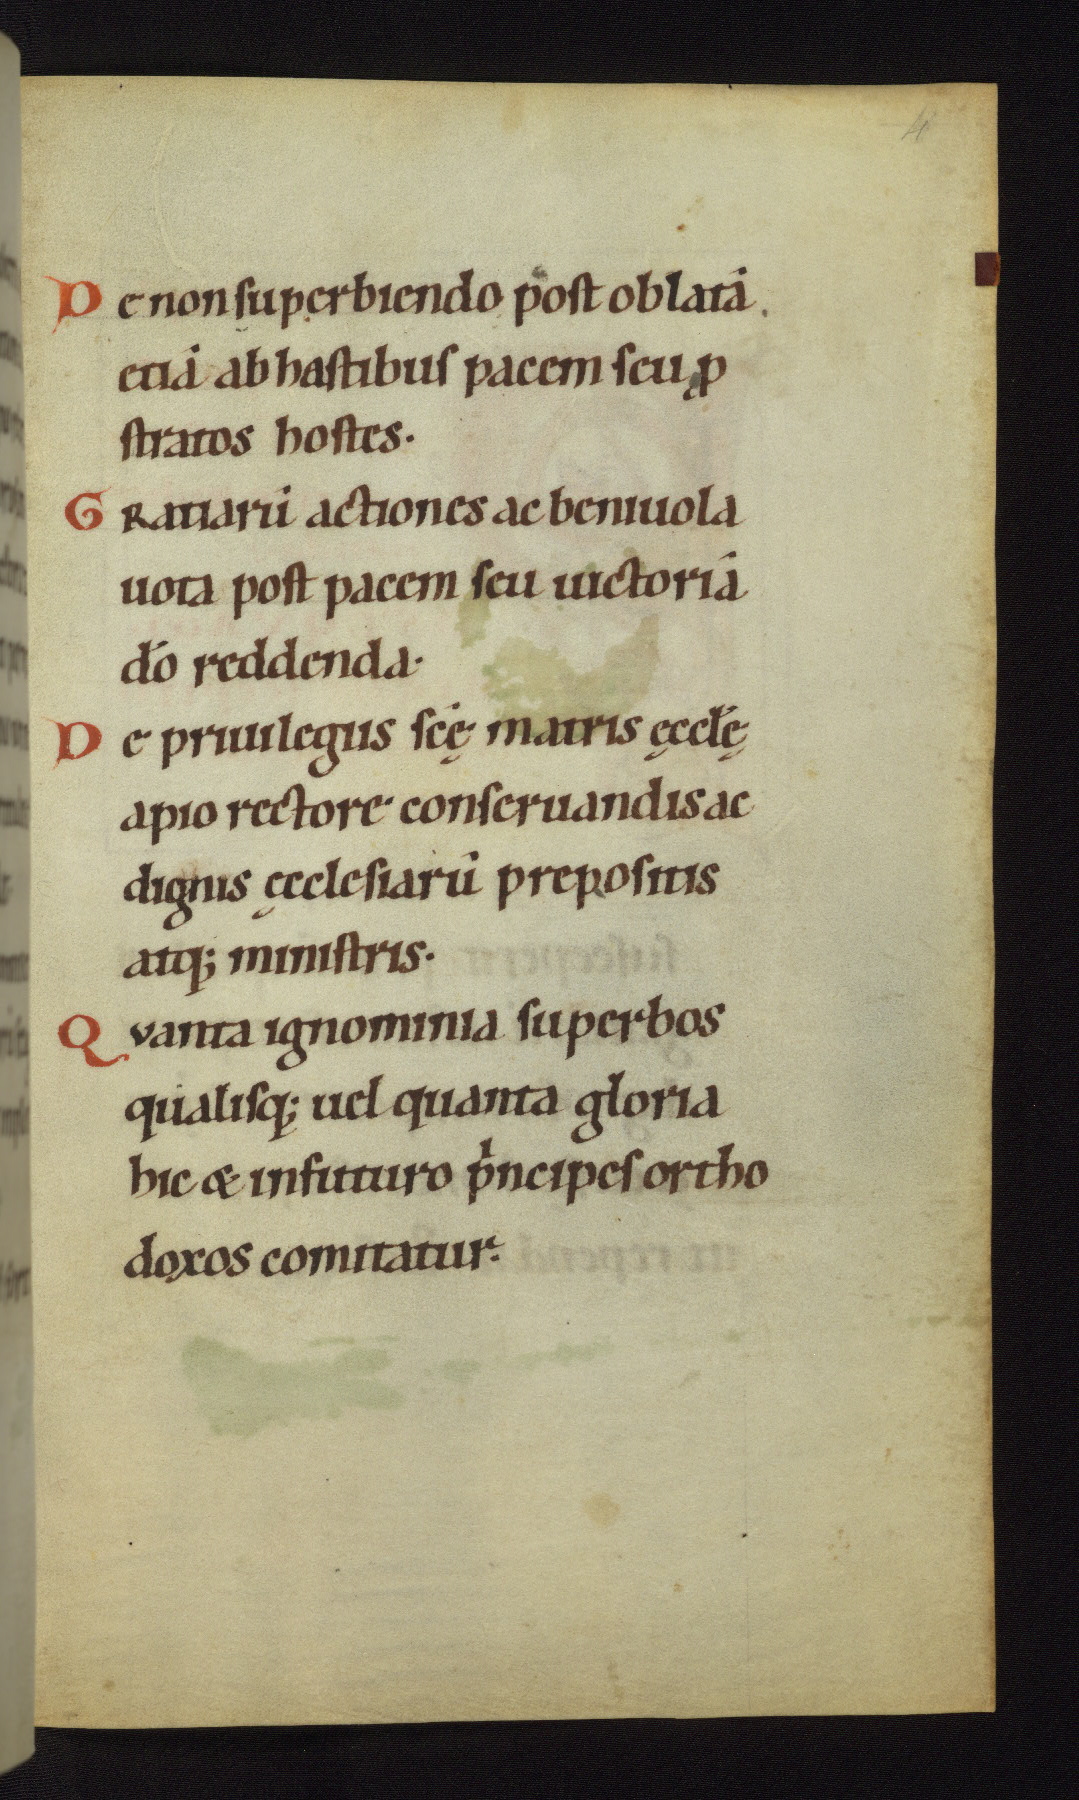 4
De non superbiendo post oblatā
etiā ab hastibus pacem seu ꝓ
stratos hostes.
Gratiarū actiones ac beniuola
uota post pacem seu uictoriā
dō reddenda.
De priuilegiis scę̄ matris ęccłę
apio rectore conseruandis ac
dignis ęcclesiarū prepositis
atq; ministris.
Qvanta ignominia superbos
qualisq; uel quanta gloria
hic & infuturo pͥncipes ortho
doxos comitatur.